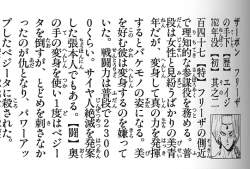 ザーボン フリーザ
の下【歴】
役【初】其之二
百四十七【特】フリーザの側近
で理知的な参謀役を務める。普
段は女性と見紛うばかりの美青
年だが、変身して真の力を発揮
するとケモノの姿になる。美
を好む彼は変身するのを嫌って
いた。戦闘力は普段で230
0くらい。サイヤ人絶滅を発案
した張本人でもある。【闘】奥
の手の変身を使い1度はベジー
タを倒すが、とどめを刺さなか
ったのが仇となり、パワーアッ
プしたベジータに殺された。